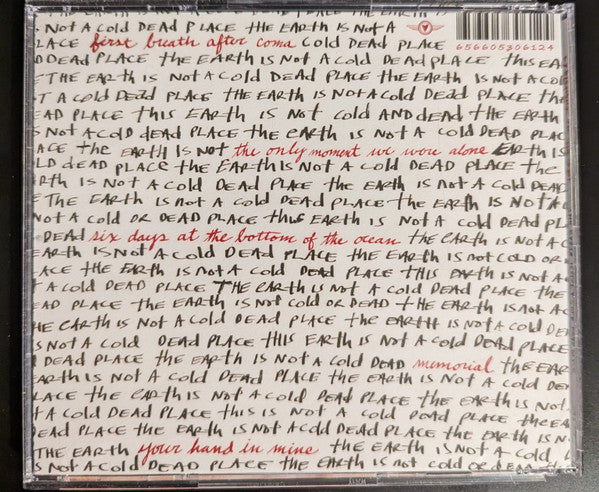 S NOT A COLD DEAD PLACE THE EARTH IS NOT A
LACE first breath after coma COLD DEAD PLACE
656605306124
D DEAD PLACE THE EARTH IS NOT A COLD DEAD PLACE THIS EAR
THE EARTH IS NOT A COLD DEAD PLACE THE EARTH IS NOT A COL
T A COLD DEAD PLACE THE EARTH IS NOT A COLD DEAD PLACE THE
EAD PLACE THIS EARTH IS NOT COLD AND DEAD THE EARTH
S NOT A COLD DEAD PLACE THE EARTH IS NOT A COLD DEAD PLAC
ACE THE EARTH IS NOT the only moment we were alone EARTH IS
LD DEAD PLACE THE EARTH IS NOT A COLD DEAD PLACE THE
RTH IS NOT A COLD DEAD PLACE THE EARTH IS NOT A COLD DEAD
THE EARTH IS NOT A COLD DEAD PLACE THE EARTH IS NOT A
NOT A COLD OR DEAD PLACE THIS EARTH IS NOT A COLD DEAD PL
DEAD six days at the bottom of the ocean THE EARTH IS NOT A C
EARTH IS NOT A COLD DEAD PLACE THE EARTH IS NOT COLD OR
ACE THE EARTH IS NOT A COLD DEAD PLACE THIS EARTH IS NOT A
T A COLD DEAD PLACE THE EARTH IS NOT A COLD DEAD PLACE THE
EAD PLACE THE EARTH IS NOT COLD OR DEAD THE EARTH IS NOT A C
HE EARTH IS NOT A COLD DEAD PLACE THE EARTH IS NOT A COLD DE
S NOT A COLD DEAD PLACE THIS EARTH IS NOT A COLD DEAD PLACE
DEAD PLACE THE EARTH IS NOT A COLD DEAD memorial THE EAR
EARTH IS NOT A COLD DEAD PLACE THE EARTH IS NOT A COLD DE
LACE THE EARTH IS NOT A COLD DEAD PLACE THE EARTH IS NOT
T A COLD DEAD PLACE THIS IS NOT A COLD DEAD PLACE THE EA
EAD PLACE THE EARTH IS NOT A COLD DEAD PLACE THE EARTH IS N
THE EARTH your hand in mine THE EARTH IS NOT A COLD D
S NOT A COLD DEAD PLACE THE EARTH IS NOT COLD OR DEAD THE